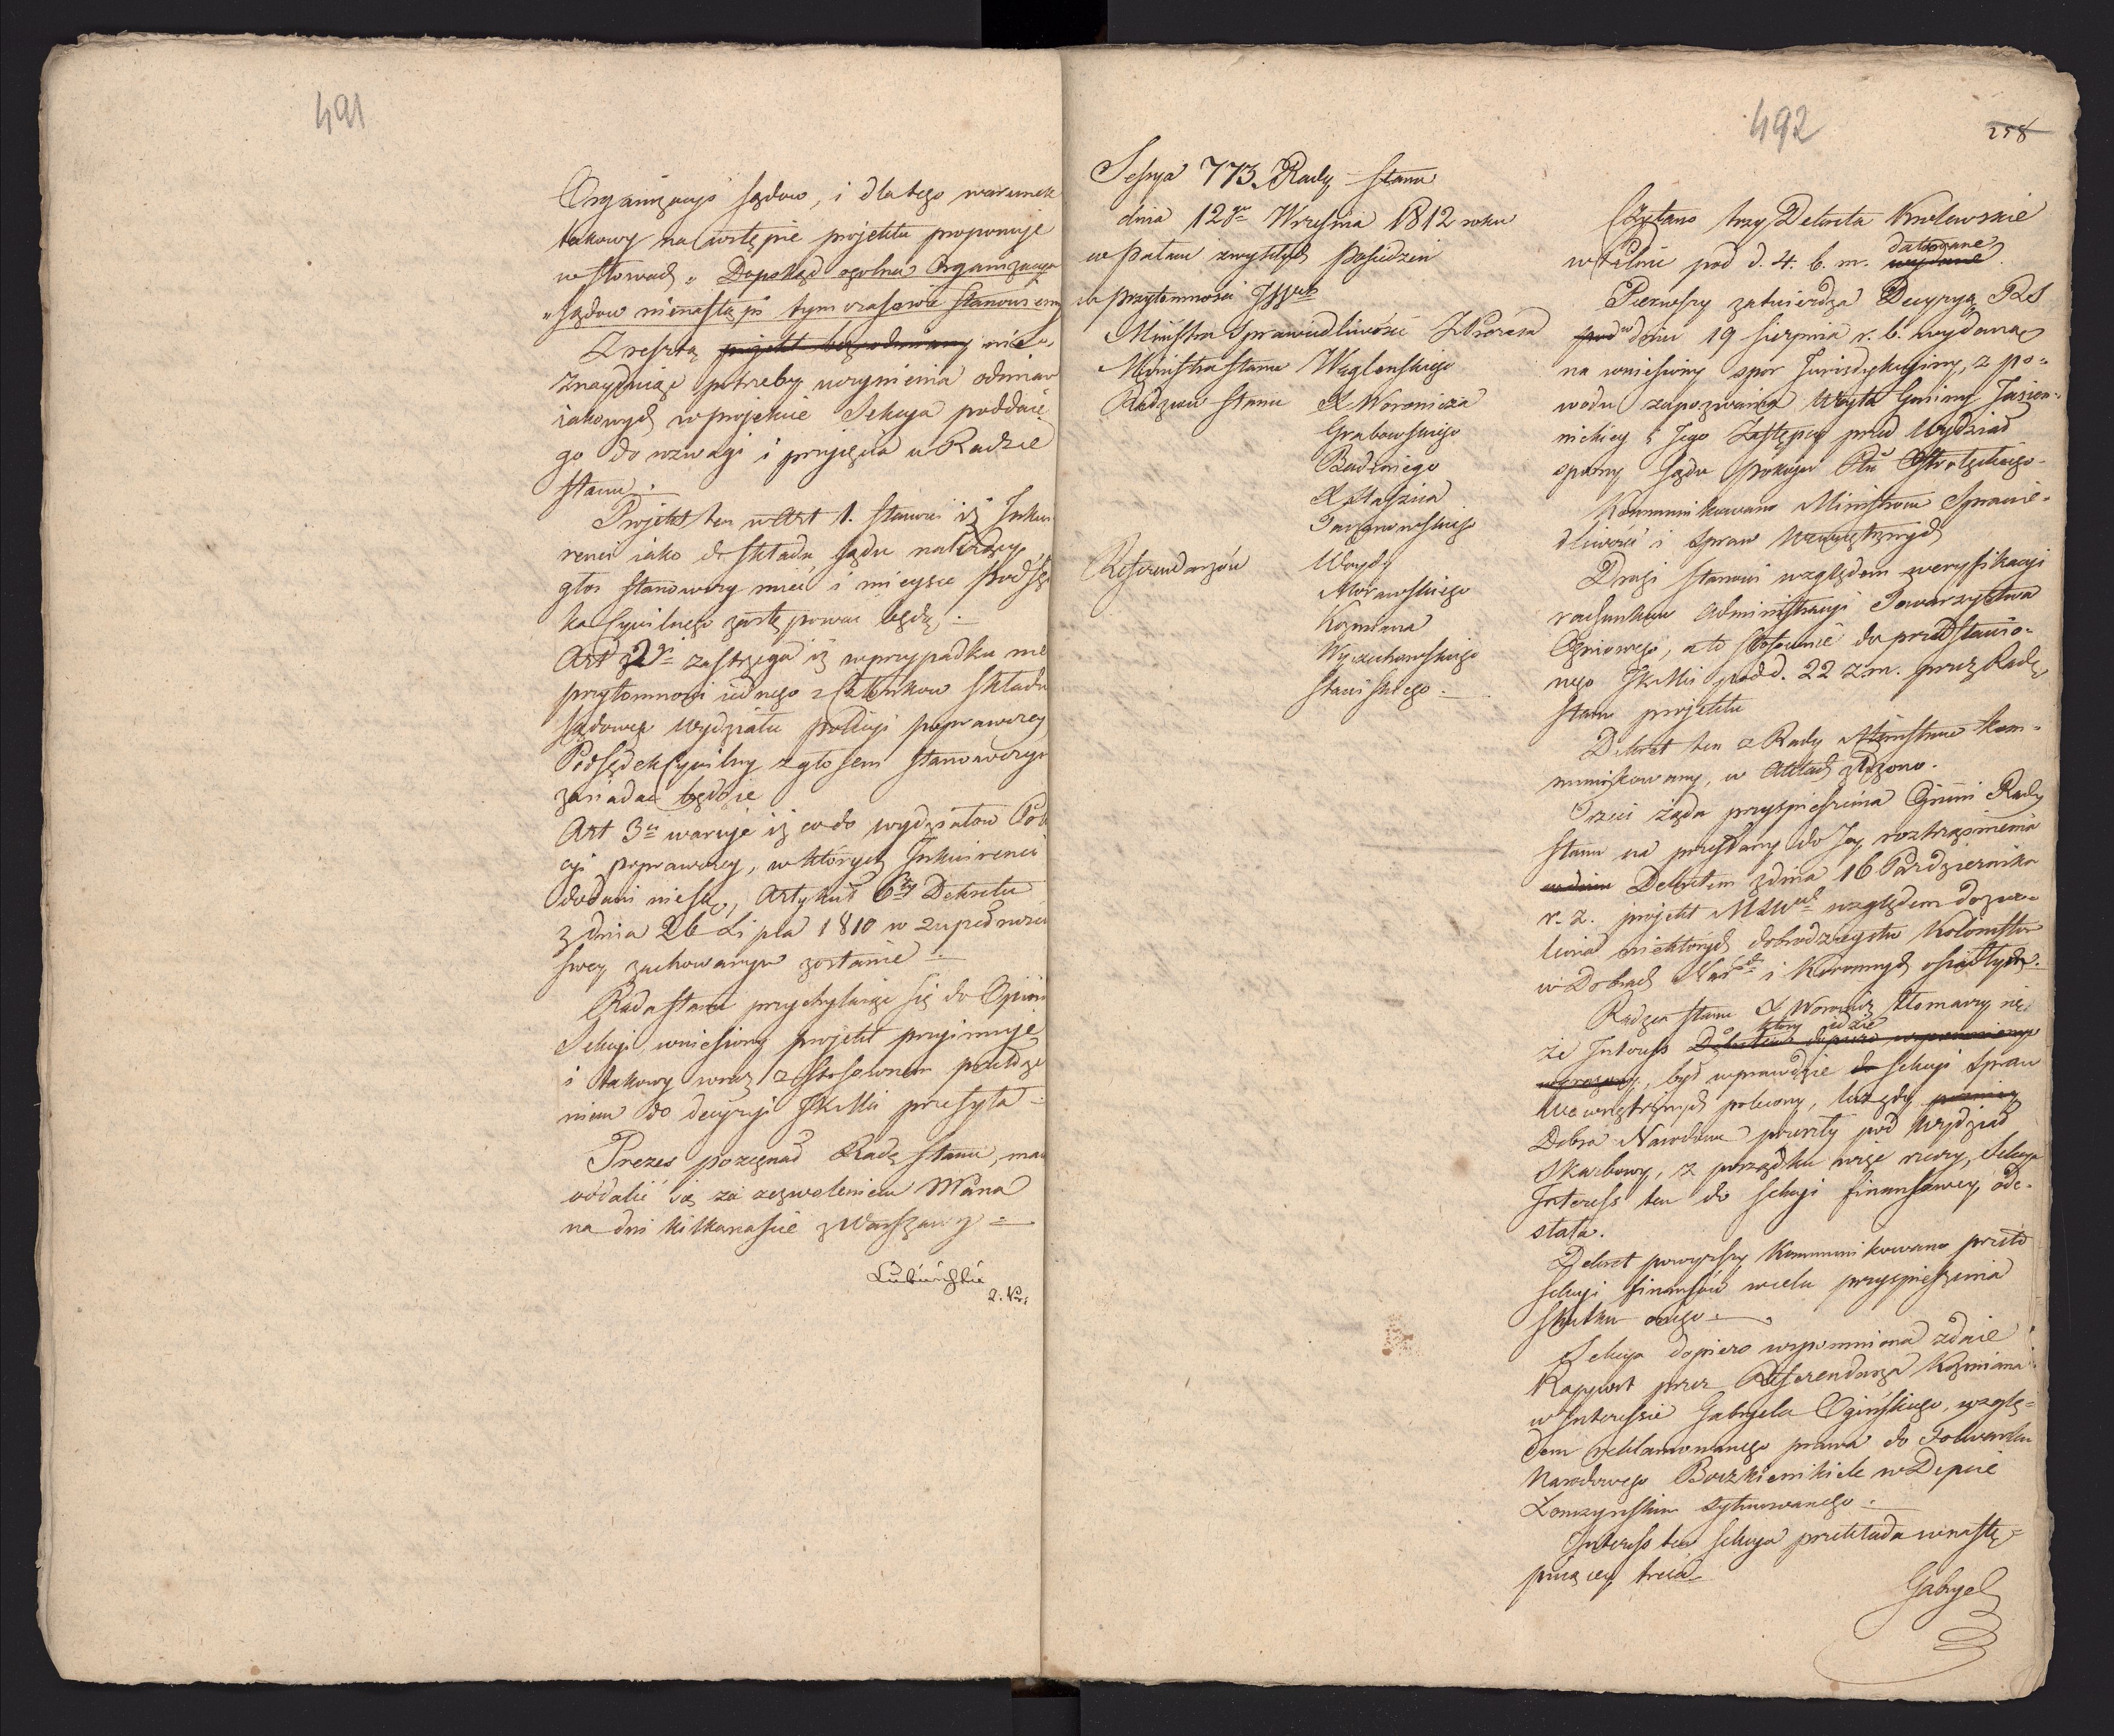 491
Organizacyi sądow, i dla tego warunek
takowy na wstępie projektu proponuje
w słowach „ Dopokąd ogolna Organizacya
„ sądow nienastąpi tymczasowie stanowiemy
Zresztą projekt nie
znayduiąc potrzeby uczynienia odmian
iakowych w projekcie Sekcya poddaie
go do rozwagi i przyjęcia w Radzie
Stanu.
Projekt ten w Art 1. stanowi iż Inkwi
renci iako do składu sądu należący
głos stanowczy mieć i mieysce Podsęd
ka Cywilnego zastępować będą.
Art 2gi zastrzega iż w przypadku nie
przytomności iednego z Członkow składu
sądowego Wydziału Policyi poprawczey
Podsędek Cywilny z głosem stanowczym
zasiadać będzie
Art 3ci waruje iż co do wydziałow Poli
cyi poprawczey, w których Inkwirenci
dodani niesą, Artykuł 6ty Dekretu
z dnia 26 Lipca 1810 w zupełności
swey zachowanym zostanie.
Rada Stanu przychylaiąc się do Opinii
Sekcyi, wniesiony projekt przyimuje
i takowy wraz z stosownem przełoże
niem do decyzyi JKMci przesyła.
Prezes pożegnał Radę Stanu, maiąc
oddalić się za zezwoleniem
na dni kilkanaście z Warszawy
Lubieński
492
258
Sessya 773. Rady Stanu
dnia 12go Września 1812 roku
w Pałacu zwykłych Posiedzeń
w przytomności JJWch
Ministra Sprawiedliwości Z Prezesa
Ministra Stanu Węgleńskiego
Radzców Stanu X Woronicza
Grabowskiego
Badeniego
X Staszica
Tarnowskiego
Referendarzów Woydy
Morawskiego
Kozmiana
Wyczechowskiego
Staniskiego.
Czytano trzy Dekreta Krolewskie
w Pilnie pod d. 4. b. m. wydane datowane
Pierwszy zatwierdza Decyzyą RS
pod w dniu 19 sierpnia r. b. wydaną
na wniesiony spor Jurisdykcyiny, z po=
wodu zapozwania Woyta Gminy Jasien=
nickiey i Jego Zastępcy przed Wydział
sporny Sądu Pokoju Ptu Ostrołęckiego
Kommunikowano Ministrom Sprawie=
dliwości i Spraw Wewnętrznych
Drugi stanowi względem weryfikacyi
rachunkow Administracyi Towarzystwa
Ogniowego, a to stosownie do przedstawio=
nego JKMci pod d. 22 z. m. przez Radę
Stanu projektu
Dekret ten z Rady Ministrow kom=
munikowany, w Aktach złożono.
Trzeci żąda przyspieszenia Opinii Rady
Stanu na przesłany do Jey roztrząśnienia
Dekretem z dnia 16 Pazdziernika
r. z. projekt względem dozwo=
lenia niektórych dobrodzieystw Kolonistom
w Dobrach Nard. i Koronnych osiadłych.
Radzca Stanu X Woronicz tłomaczy się
że Interess Dekretem dopiero wspomnionym który
wyrażony, był wprawdzie do Sekcyi Spraw
Wewnętrznych polecony, lecz gdy
Dobra Narodowe przeszły pod Wydział
Skarbowy, z porządku więc rzeczy, Sekcya
Interess ten do Sekcyi finansowey, ode=
słała.
Dekret powyższy Kommunikowano przeto
Sekcyi finansów w celu przyspieszenia
skutku onego.
Sekcya dopiero wspomniona zdaie
Rapport przez Referendarza Kozmiana
w Interessie Gabryela Ogińskiego, wzglę=
dem reklamowanego prawa do Folwarku
Narodowego w Depcie
Łomzyńskim sytuowanego.
Interess ten Sekcya przekłada w nastę=
puiącey treści
Gabryel